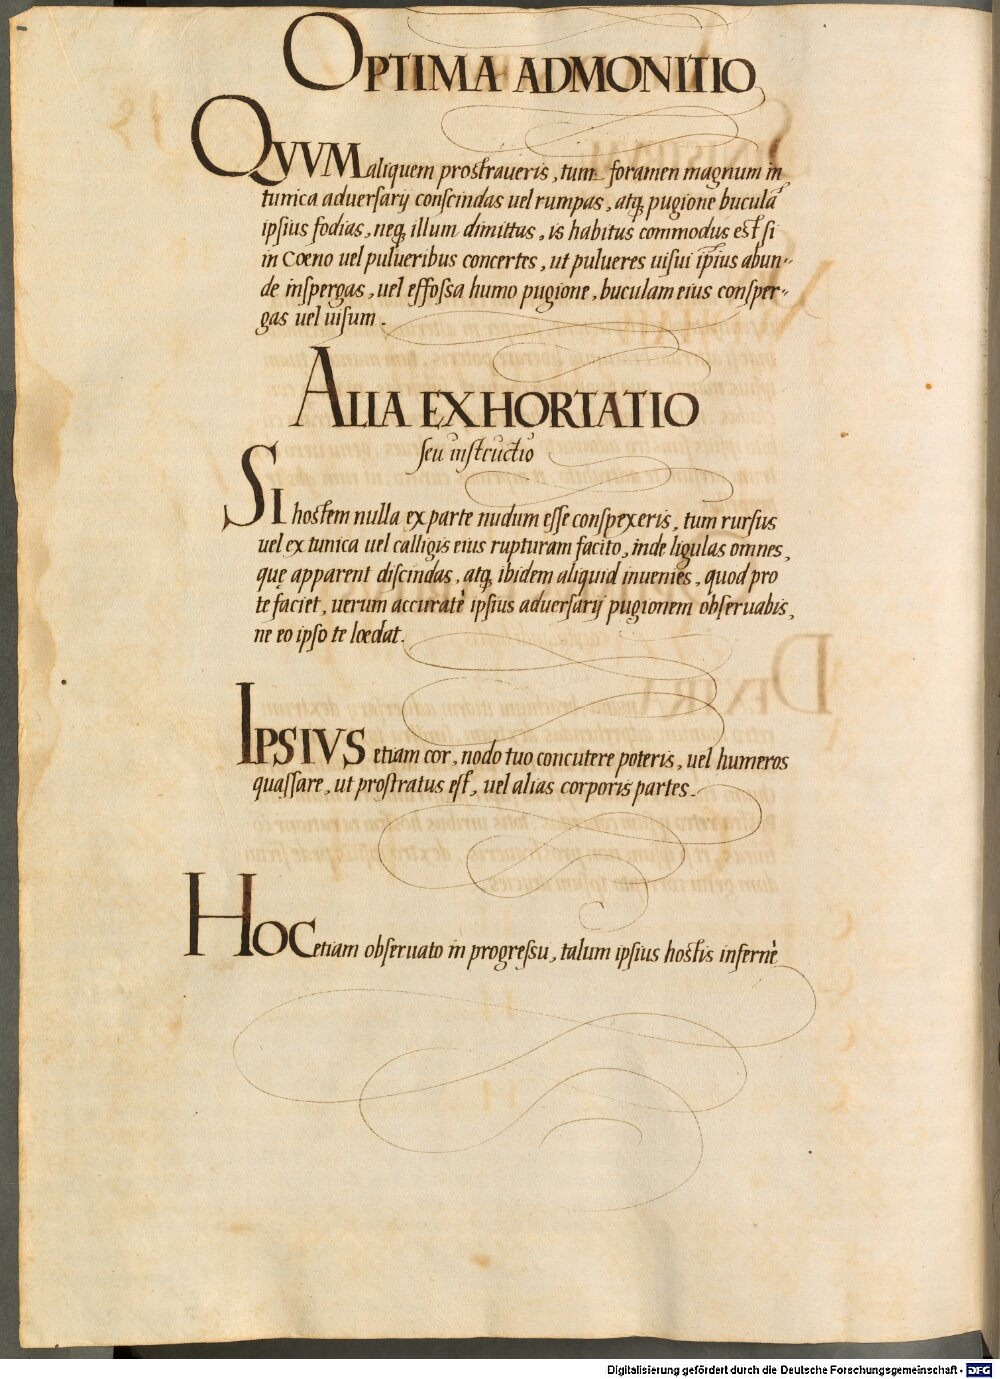 OPTIMA ADMONITIO
QVVM aliquem prostraueris, tum foramen magnum in
tunica aduersarij conscindas uel rumpas, atq; pugione buculā
ipsius fodias, neq; illum dimittas, is habitus commodus est si
in Coeno uel pulueribus concertes, ut pulueres uisui ip̄ius abun-
de inspergas, uel effossa humo pugione, buculam eius consper-
gas uel uisum.
ALIA EXHORTATIO
seu instructio
SI hostem nulla ex parte nudum esse conspexeris, tum rursus
uel ex tunica uel calligis eius rupturam facito, inde ligulas omnes,
quę apparent discindas, atq; ibidem aliquid inuenies, quod pro
te faciet, uerum accuratè ipsius aduersarij pugionem obseruabis,
ne eo ipso te loedat.
IPSIVS etiam cor, nodo tuo concutere poteris, uel humeros
quassare, ut prostratus est, uel alias corporis partes.
HOC etiam obseruato in progressu, talum ipsius hostis infernè
Digitalisierung gefördert durch die Deutsche Forschungsgemeinschaft - DFG